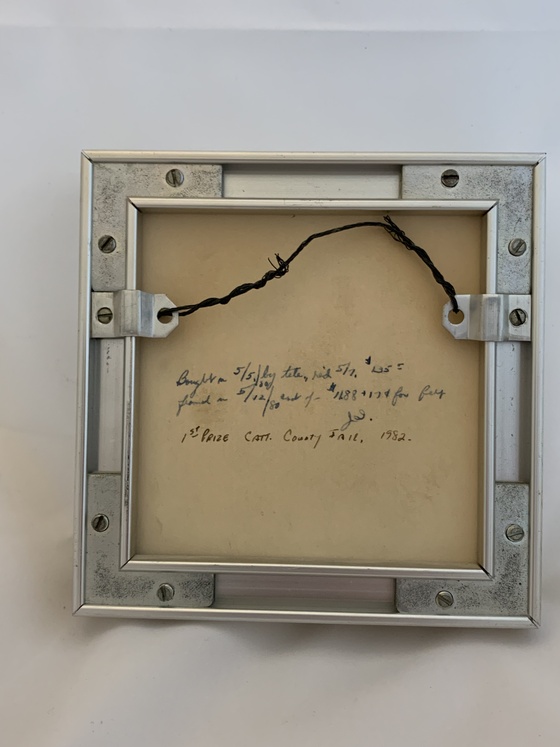 Bought on 5/5/80 by tele, rcd 5/7, $135 =
framed on 5/12/80 cost of
for
JS.
1ST PRIZE CATT. COUNTY FAIR, 1982-